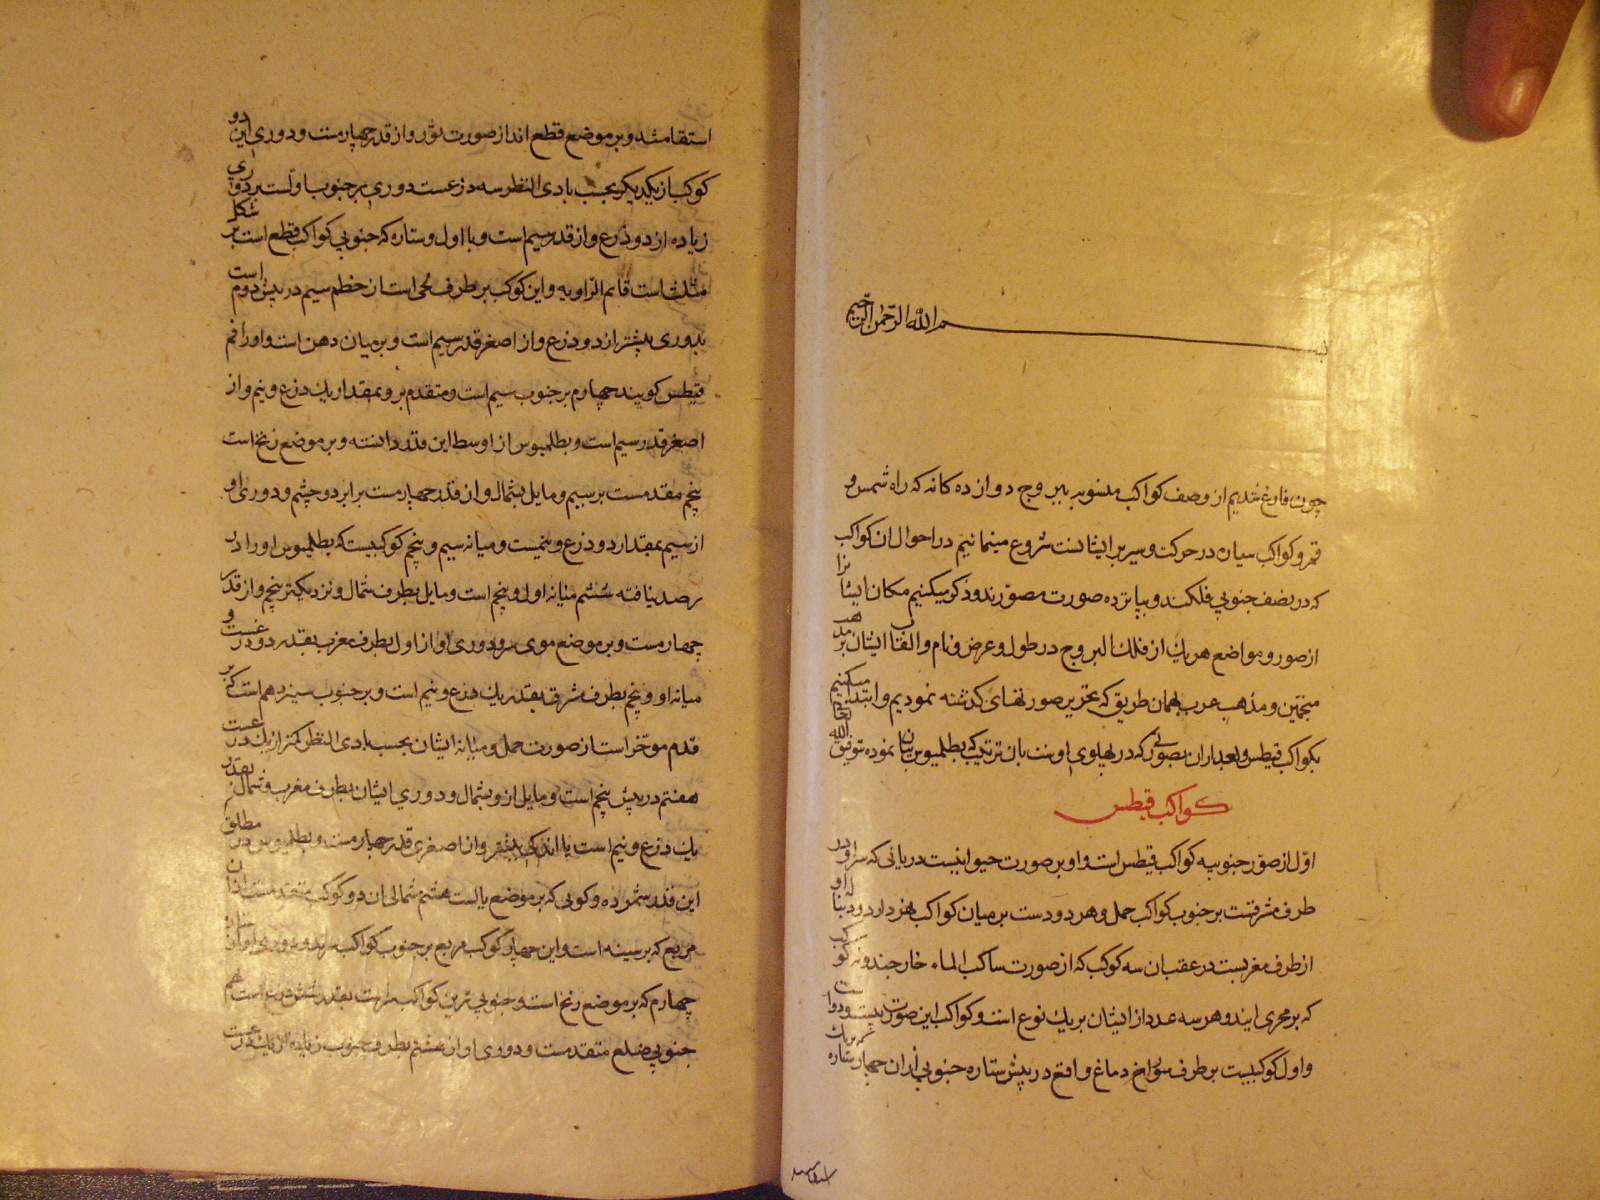 بسم الله الرحمن الرحیم
چون فارغ شدیم از وصف کواکب منسوبه ببروج دوازده کانه که راه شمس و
قمر و کواکب سیاره در حرکت و سیر بر ایشانست شروع مینمائیم در احوال ان کواکب
که در نصف جنوبی فلکند و بپانزده صورت مصورند و ذکر میکنیم مکان ایشانرا
از صور و مواضع هر یک از فلک البروج در طول و عرض و نام و القاب ایشان بر مذهب
منجمین و مذهب عرب بهمان طریق که تحریر صورتهای کذشته نمودیم و ابتدا میکنیم
بکواکب قیطس و بعد از ان بصورتی که در پهلوی اوست بان ترتیب که بطلمیوس بیان نموده بتوفیق الله تعالی
کواکب قیطس
اول از صور جنوبیه کواکب قیطس است و او بر صورت حیوانیست دریائی که سر او در
طرف مشرقست بر جنوب کواکب حمل و هر دو دست بر میان کواکب هنر دارد و دنباله او
از طرف مغربست در عقب ان سه کوکب که از صورت ساکب الماء خارجند و نه کوکب
که بر مجری ایند و هر سه عدد از ایشان بر یک نوع است و کواکب این صورت بیست و دواست
و اول کوکبیست بر طرف سوراخ دماغ واقع در پیش ستاره جنوبی از ان چهار ستاره که بر یک
استقامشد و بر موضع قطع اند از صورت ثور و از قدر چهارمست و دوری این دو
کوکب از یکدیکر بحسب بادی النظر سه ذرعست دوری بر جنوب اولست بر دوری
زیاده از دو ذرع و از قدر سیم است و با اول و ستاره که جنوبی کواکب قطع است بر شکل
مثلث است قائم الزاویه و این کوکب بر طرف لحی است از خطم سیم در پیش دوم است
بدوری بیشتر از دو ذرع و از اصغر قدر سیم است و بر میان دهن است و او را فم
قیطس کویند چهارم بر جنوب سیم است و متقدم بر و بمقدار یک ذرع و نیم و از
اصغر قدر سیم است و بطلمیوس از اوسط این قدر دانسته و بر موضع زنخ است
پنجم مقدمست بر سیم و مایل بشمال و از قدر چهارمست برابر دو چشم و دوری او
از سیم بمقدار دو ذرع و نیمست و میانه سیم و پنجم کوکبیست که بطلمیوس او را در
رصد نیافته ششم میانه اول و پنجم است و مایل بطرف شمال و نزدیکتر پنجم و از قدر
چهارمست و بر موضع موی سر و دوری او از اول بطرف مغرب بقدر دو ذرعست و
میانه او و پنجم بطرف شرق بقدر یک ذرع و نیم است و بر جنوب سیزدهم است که بر
قدم موخر است از صورت حمل و میانه ایشان بحسب بادی النظر کمتر از یک ذرعست
هفتم در پیش پنجم است و مایل از و بشمال و دوری ایشان بطرف مغرب و شمال بقدر
یک ذرع و نیم است یا اندکی بیشتر و از اصغری قدر چهارمست و بطلمیوس در مطلق
این قدر شمرده و کوبی که بر موضع یالست هشتم شمالی ان دو کوکب متقدمست از ان
مربع که بر سینه است و این چهار کوکب مربع بر جنوب کواکب
چهارم که بر موضع زنخ است و جنوبی ترین کواکب بقدر شش ذرع است
جنوبی ضلع متقدمست و دوری او از هشتم بطرف جنوب زیاده از یک ذرعست